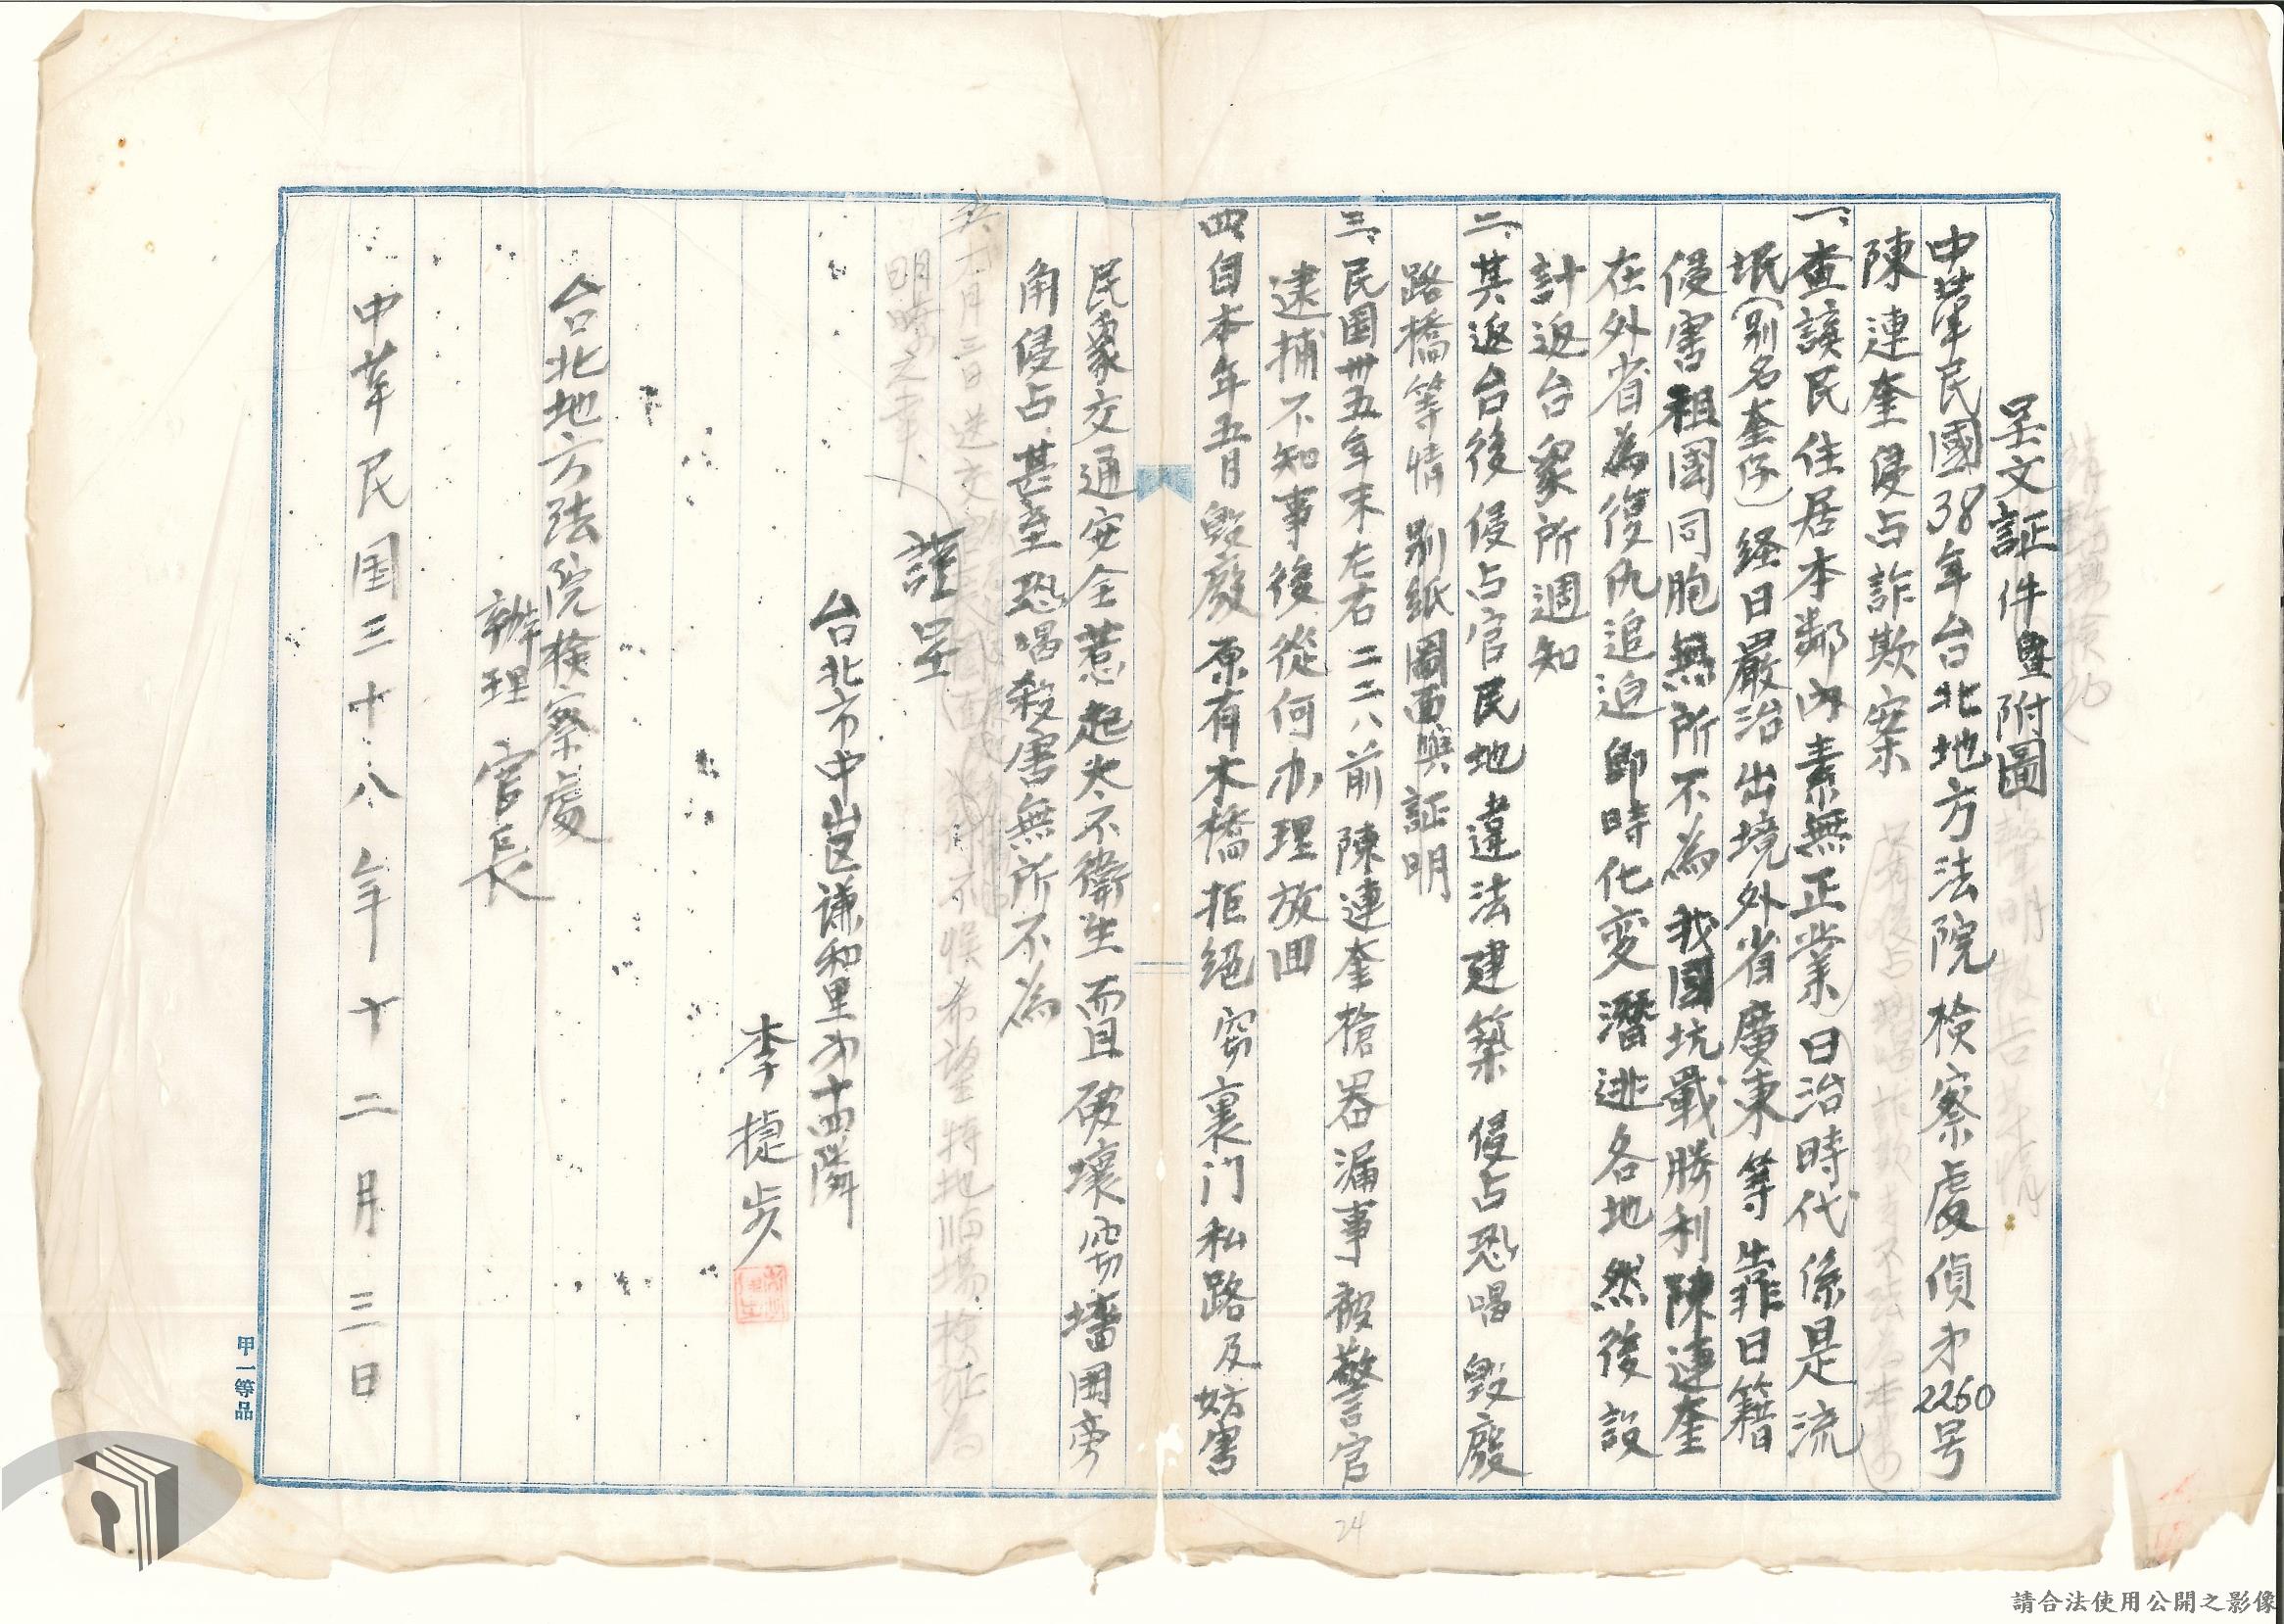 呈文証件暨附圖
中華民國38年台北地方法院檢察處偵才2260号
陳連奎侵占詐欺案
一、查該民住居本鄰內素無正業）日治時代係是流
氓（別名奎仔）経日嚴治出境外省廣東等靠日籍
侵害祖国同胞無所不為我國坑戰勝利陳連奎
在外省為復仇追迫即時化変潛逃各地然後設
計返台眾所週知
二、其返台後侵占官民地違法建築侵占恐喝毀廢
路橋等情別紙圖面與証明
三、民國卅五年末左右二二八前陳連奎槍器漏事被警官
逮捕不知事後從何办理放回
四自本年五月毀廢原有木橋拒絕窃裏门私路及妨害
民衆交通安全惹起太不衛生而且破壞窃墻圍旁
角侵占甚至恐喝殺害無所不為
謹呈
台北市中山区謙和里才十四隣
李捷步
台北地方法院檢察處
辦理官長
中華民国三十八年十二月三日
甲一等品
24
請合法使用公開之影像